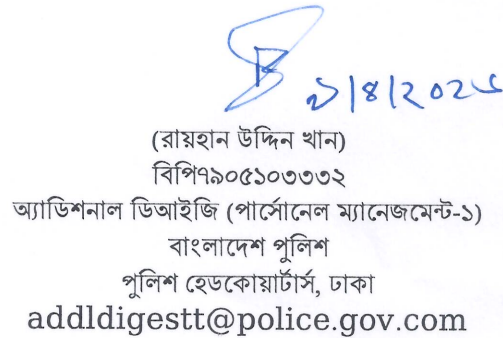 ৯/৪/২০২৫
(রায়হান উদ্দিন খান)
বিপি৭৯০৫১০৩৩৩২
অ্যাডিশনাল ডিআইজি (পার্সোনেল ম্যানেজমেন্ট-১)
বাংলাদেশ পুলিশ
পুলিশ হেডকোয়ার্টার্স, ঢাকা
addldigestt@police.gov.com